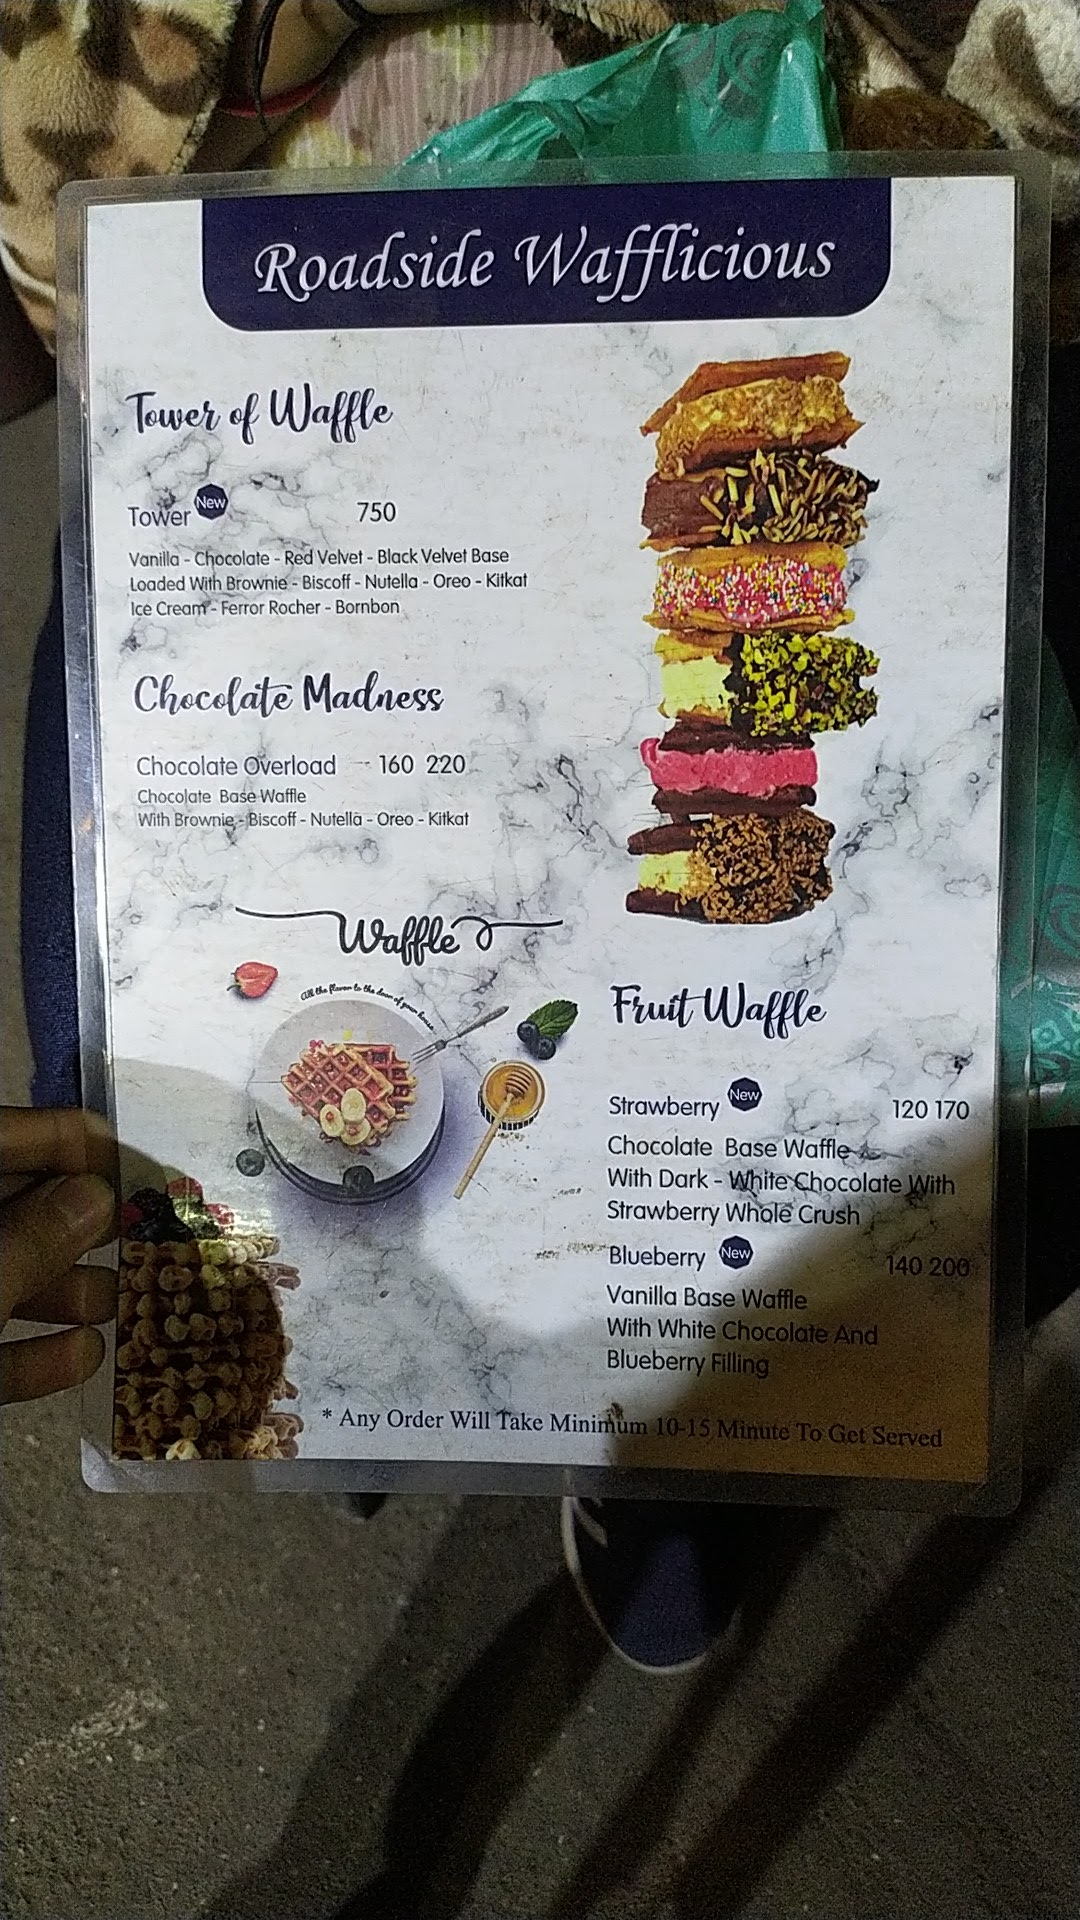 Roadside Wafflicious
Tower of Waffle
Tower New 750
Vanilla - Chocolate - Red Velvet - Black Velvet Base
Loaded With Brownie - Biscoff - Nutella - Oreo - Kitkat
Ice Cream - Ferror Rocher - Bornbon
Chocolate Madness
Chocolate Overload 160 220
Chocolate Base Waffle
With Brownie - Biscoff - Nutella - Oreo - Kitkat
Waffle
All the flavor to the door of your house
Fruit Waffle
Strawberry New 120 170
Chocolate Base Waffle
With Dark - White Chocolate With
Strawberry Whole Crush
Blueberry New 140 200
Vanilla Base Waffle
With White Chocolate And
Blueberry Filling
* Any Order Will Take Minimum 10-15 Minute To Get Served